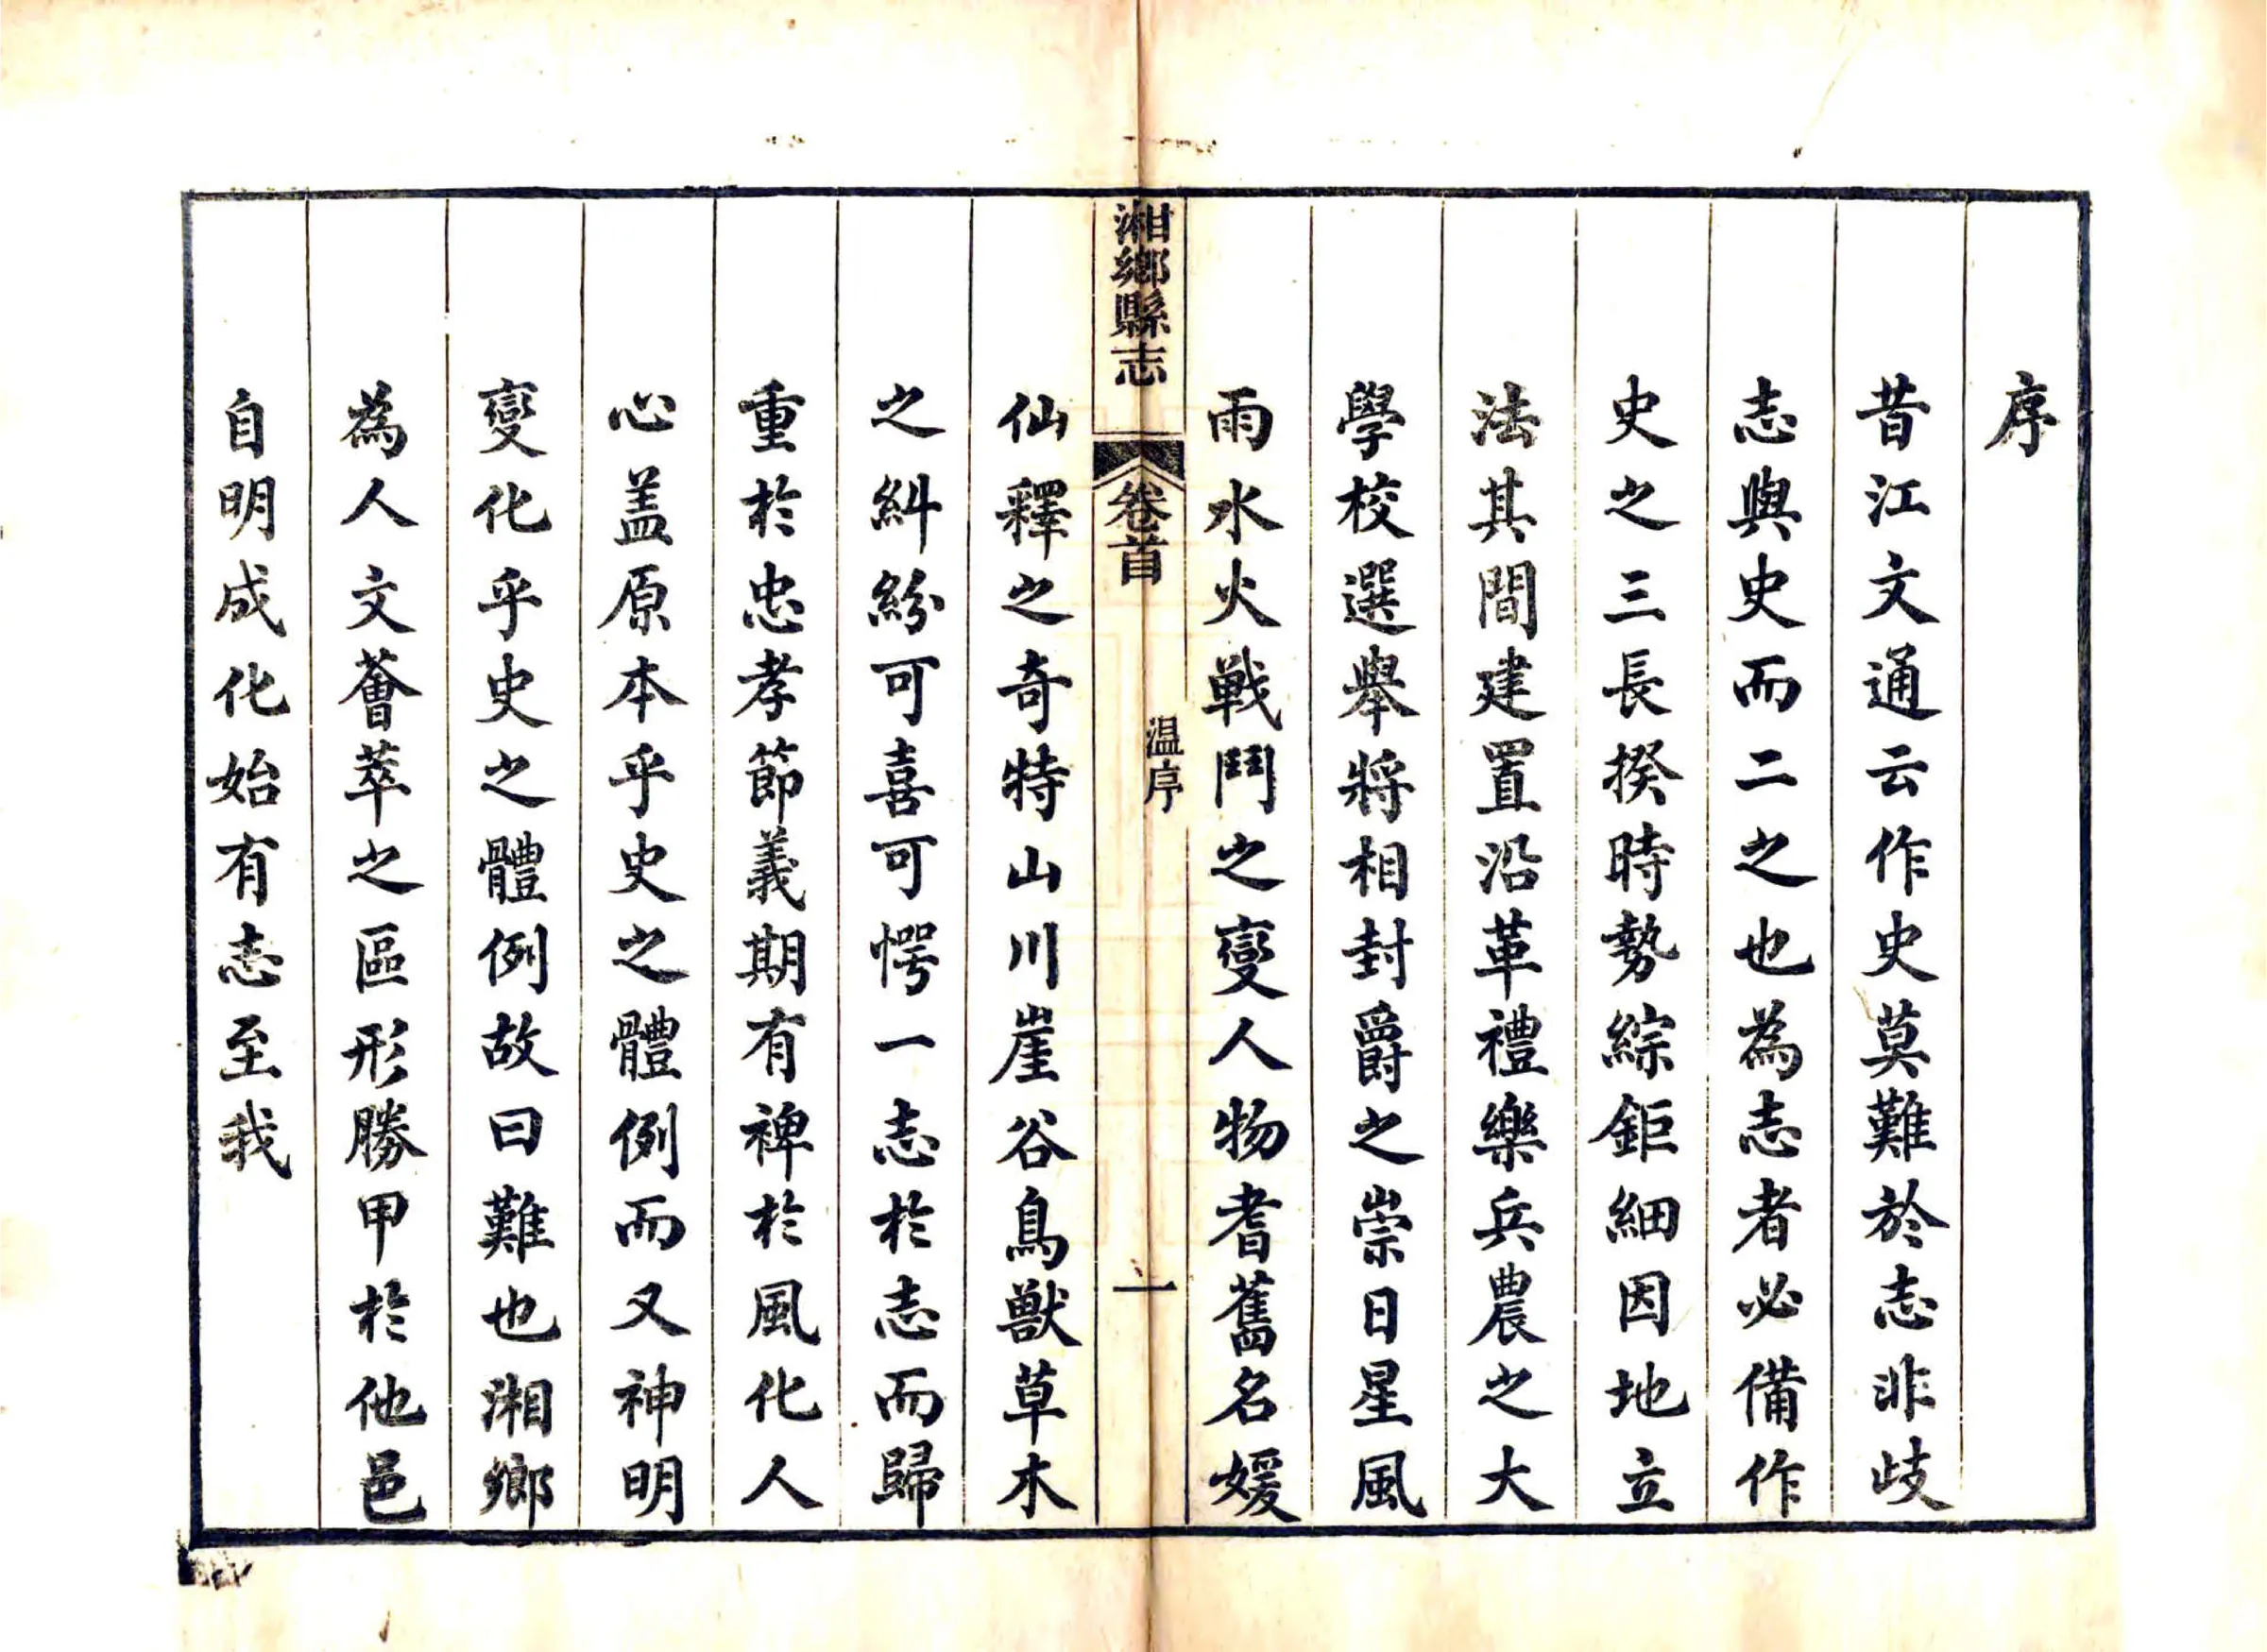 序
昔江文通云作史莫難於志非歧
志與史而二之也為志者必備作
史之三長揆時勢綜鉅細因地立
法其間建置沿革禮樂兵農之大
學校選舉將相封爵之崇日星風
雨水火戰鬥之變人物耆舊名媛
湘鄉縣志
卷首
温序
一
仙釋之奇特山川崖谷鳥獸草木
之糾紛可喜可愕一志於志而歸
重於忠孝節義期有裨於風化人
心盖原本乎史之體例而又神明
變化乎史之體例故曰難也湘鄉
為人文薈萃之區形勝甲於他邑
自明成化始有志至我